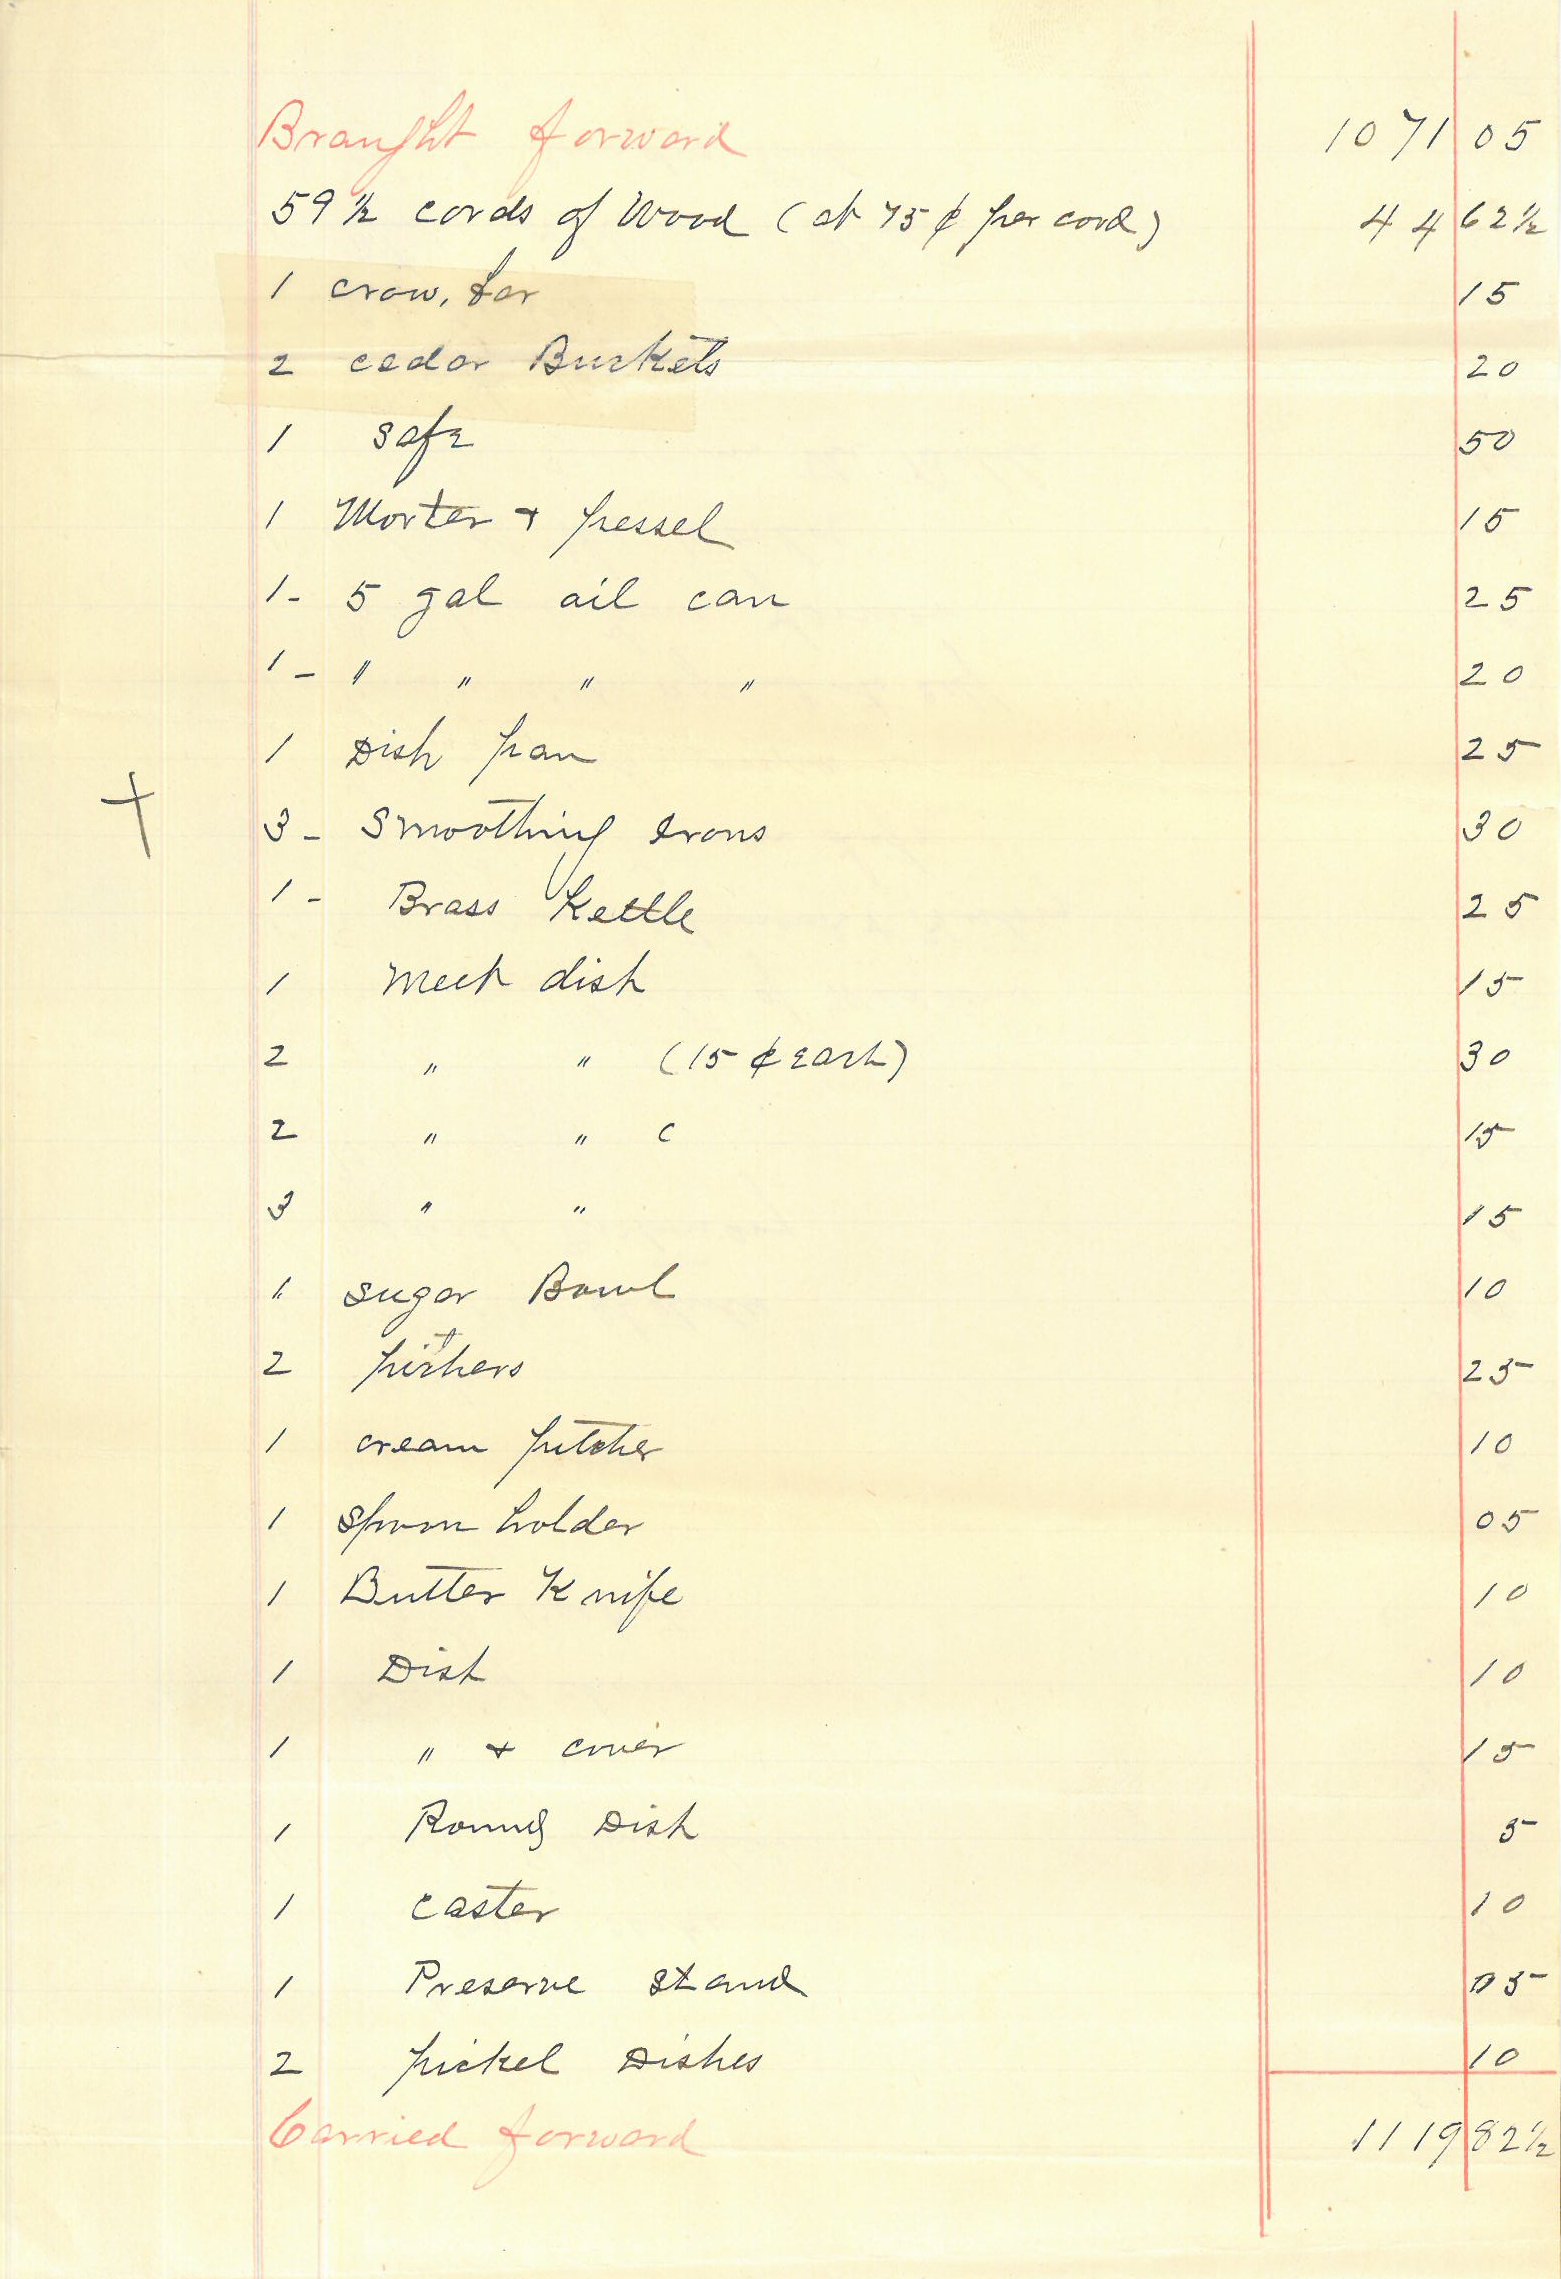 Braught forward 1071 05
59 ½ cords of Wood (at 75 ¢ per cord) 44 62½
1 crow, bar 15
2 cedar Buckets 20
1 safe 50
1 Morter + pessel 15
1- 5 gal oil can 25
1- " " " " 20
1 Dish pan 25
3- Smoothing Irons 30
1- Brass Kettle 25
1 Meet dish 15
2 " " (15 ¢ each) 30
2 " " c 15
3 " " 15
1 sugar Bowl 10
2 pitchers 25
1 cream pitcher 10
1 Spoon holder 05
1 Butter Knife 10
1 Dish 10
1 " + cover 15
1 Round Dish 5
1 caster 10
1 Preserve stand 05
2 pickel Dishes 10
Carried forward 1119 82½